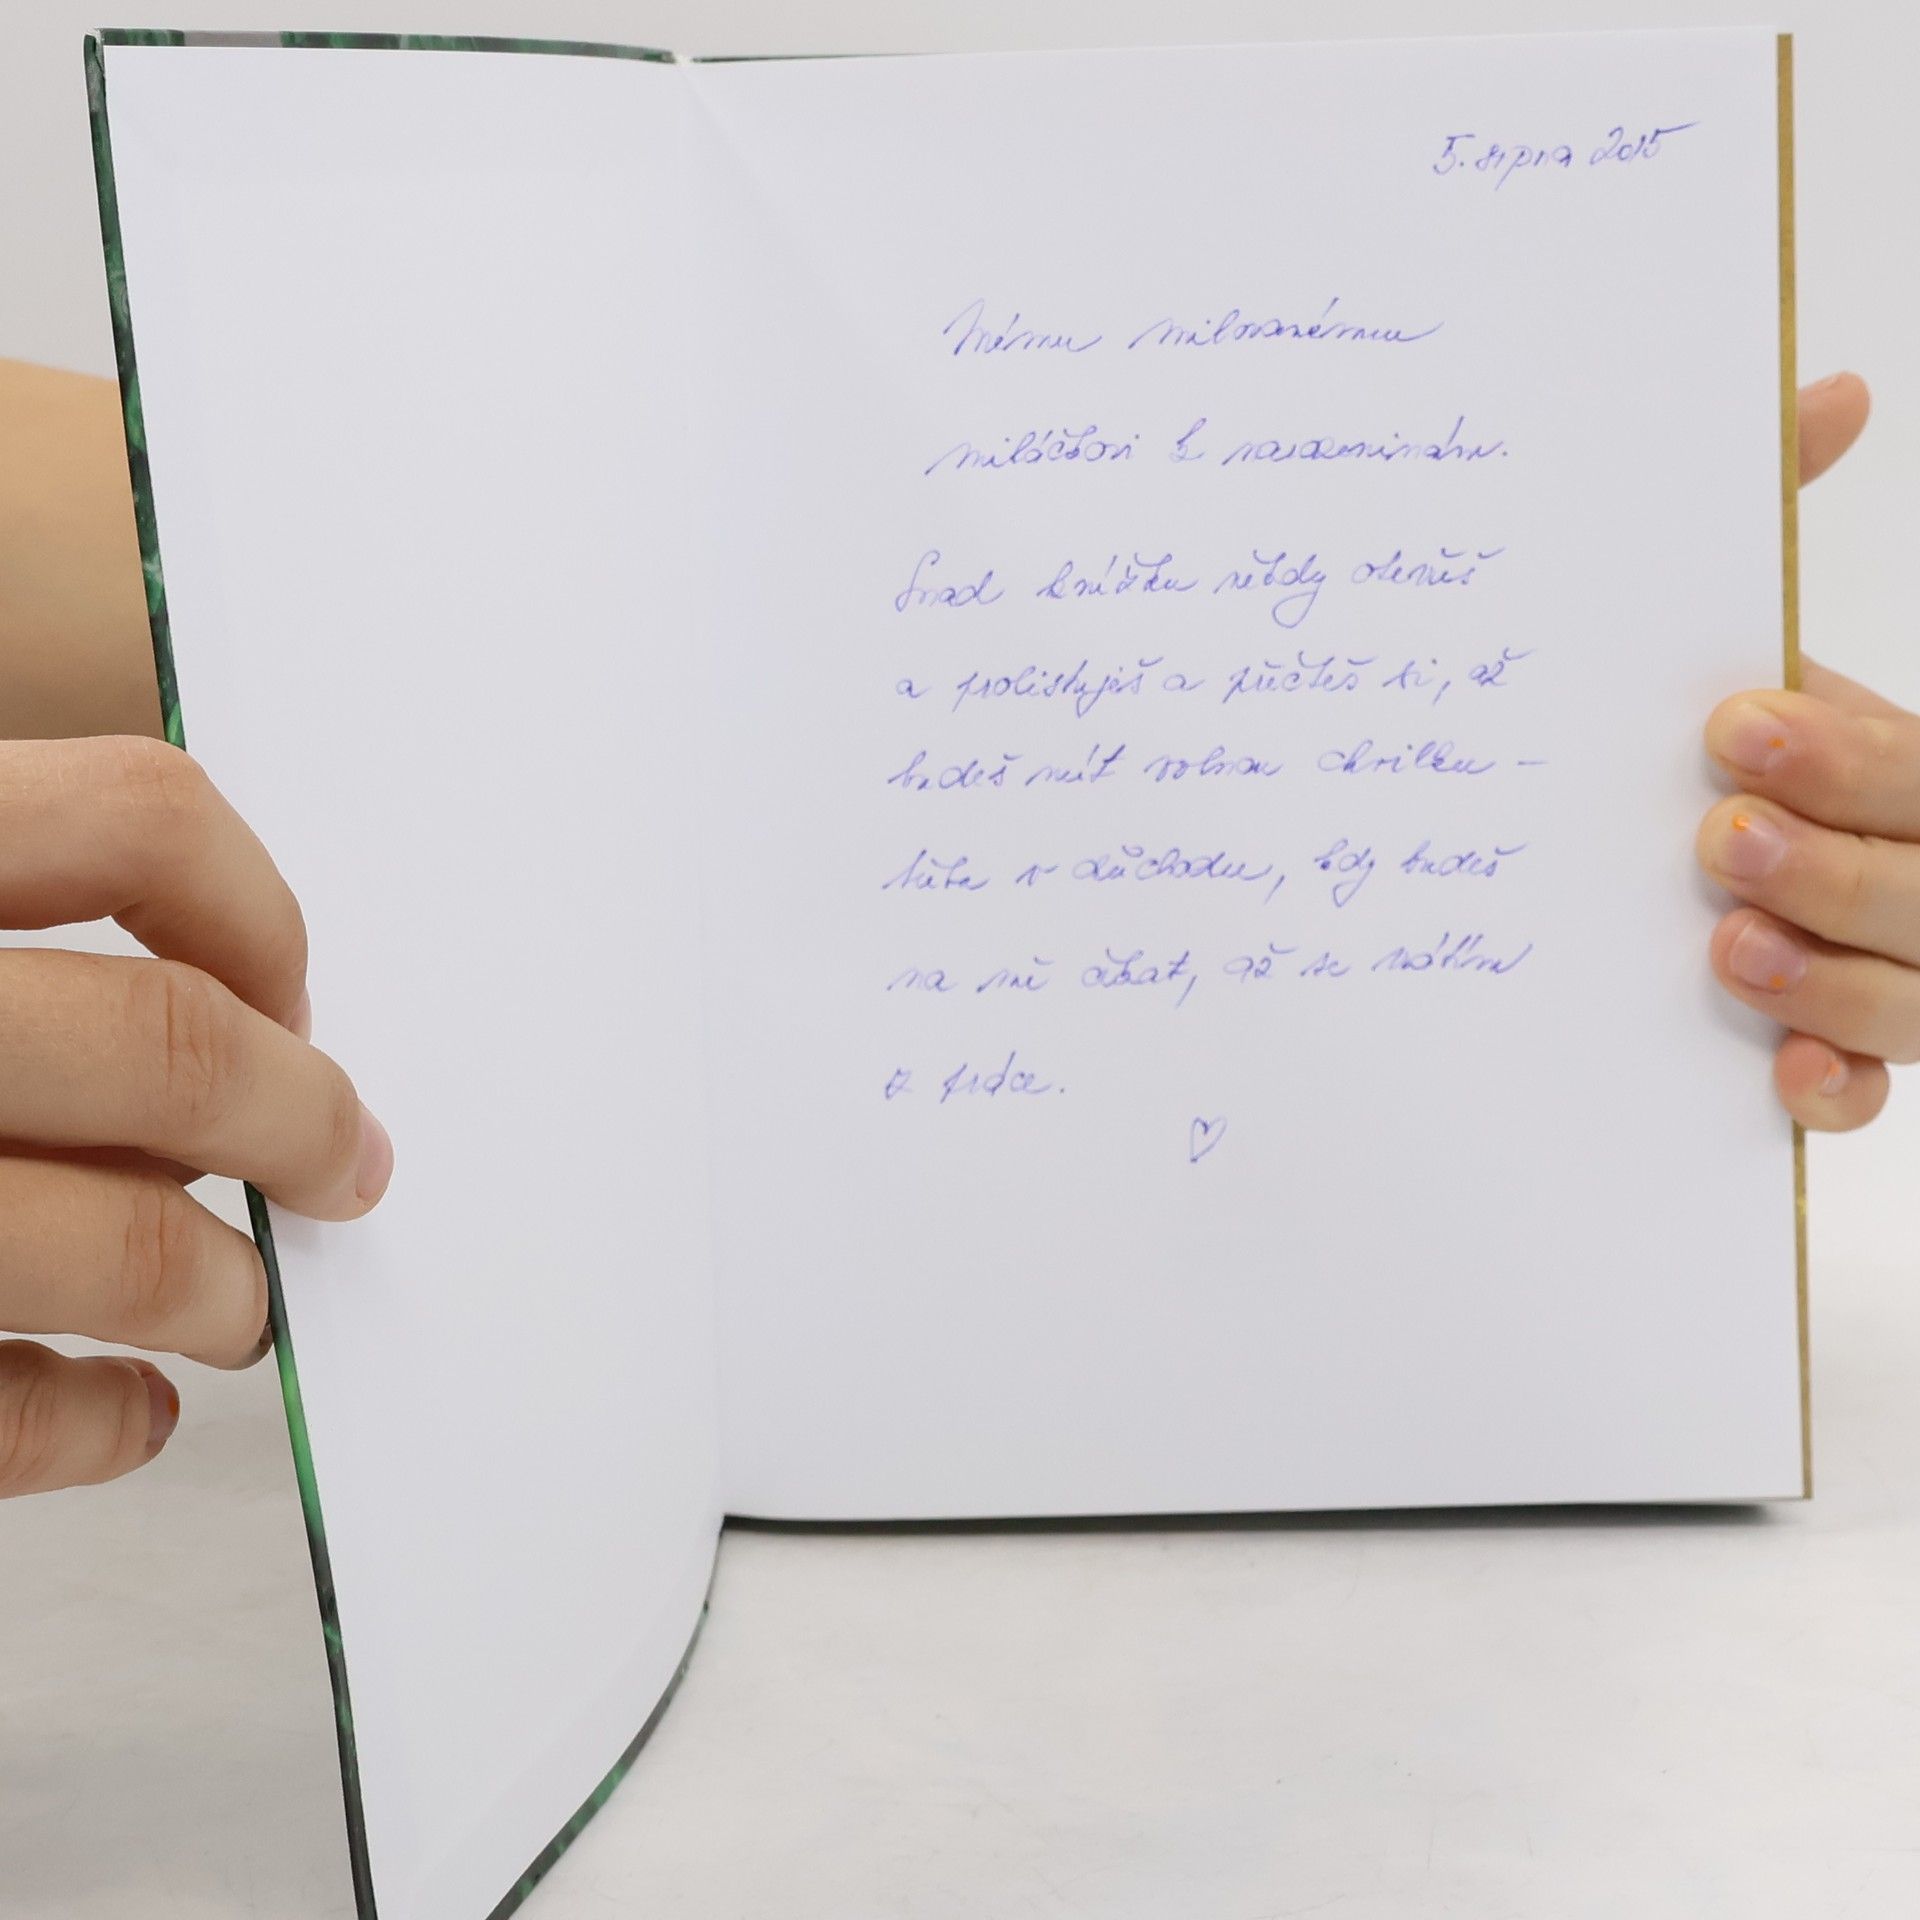 5. srpna 2015
Mému milovanému
miláčkovi k narozeninám.
Snad knížku někdy otevřeš
a prolistuješ a přečteš si, až
budeš mít volnou chvilku –
třeba v důchodu, kdy budeš
na mě čekat, až se vrátím
z práce.
♡